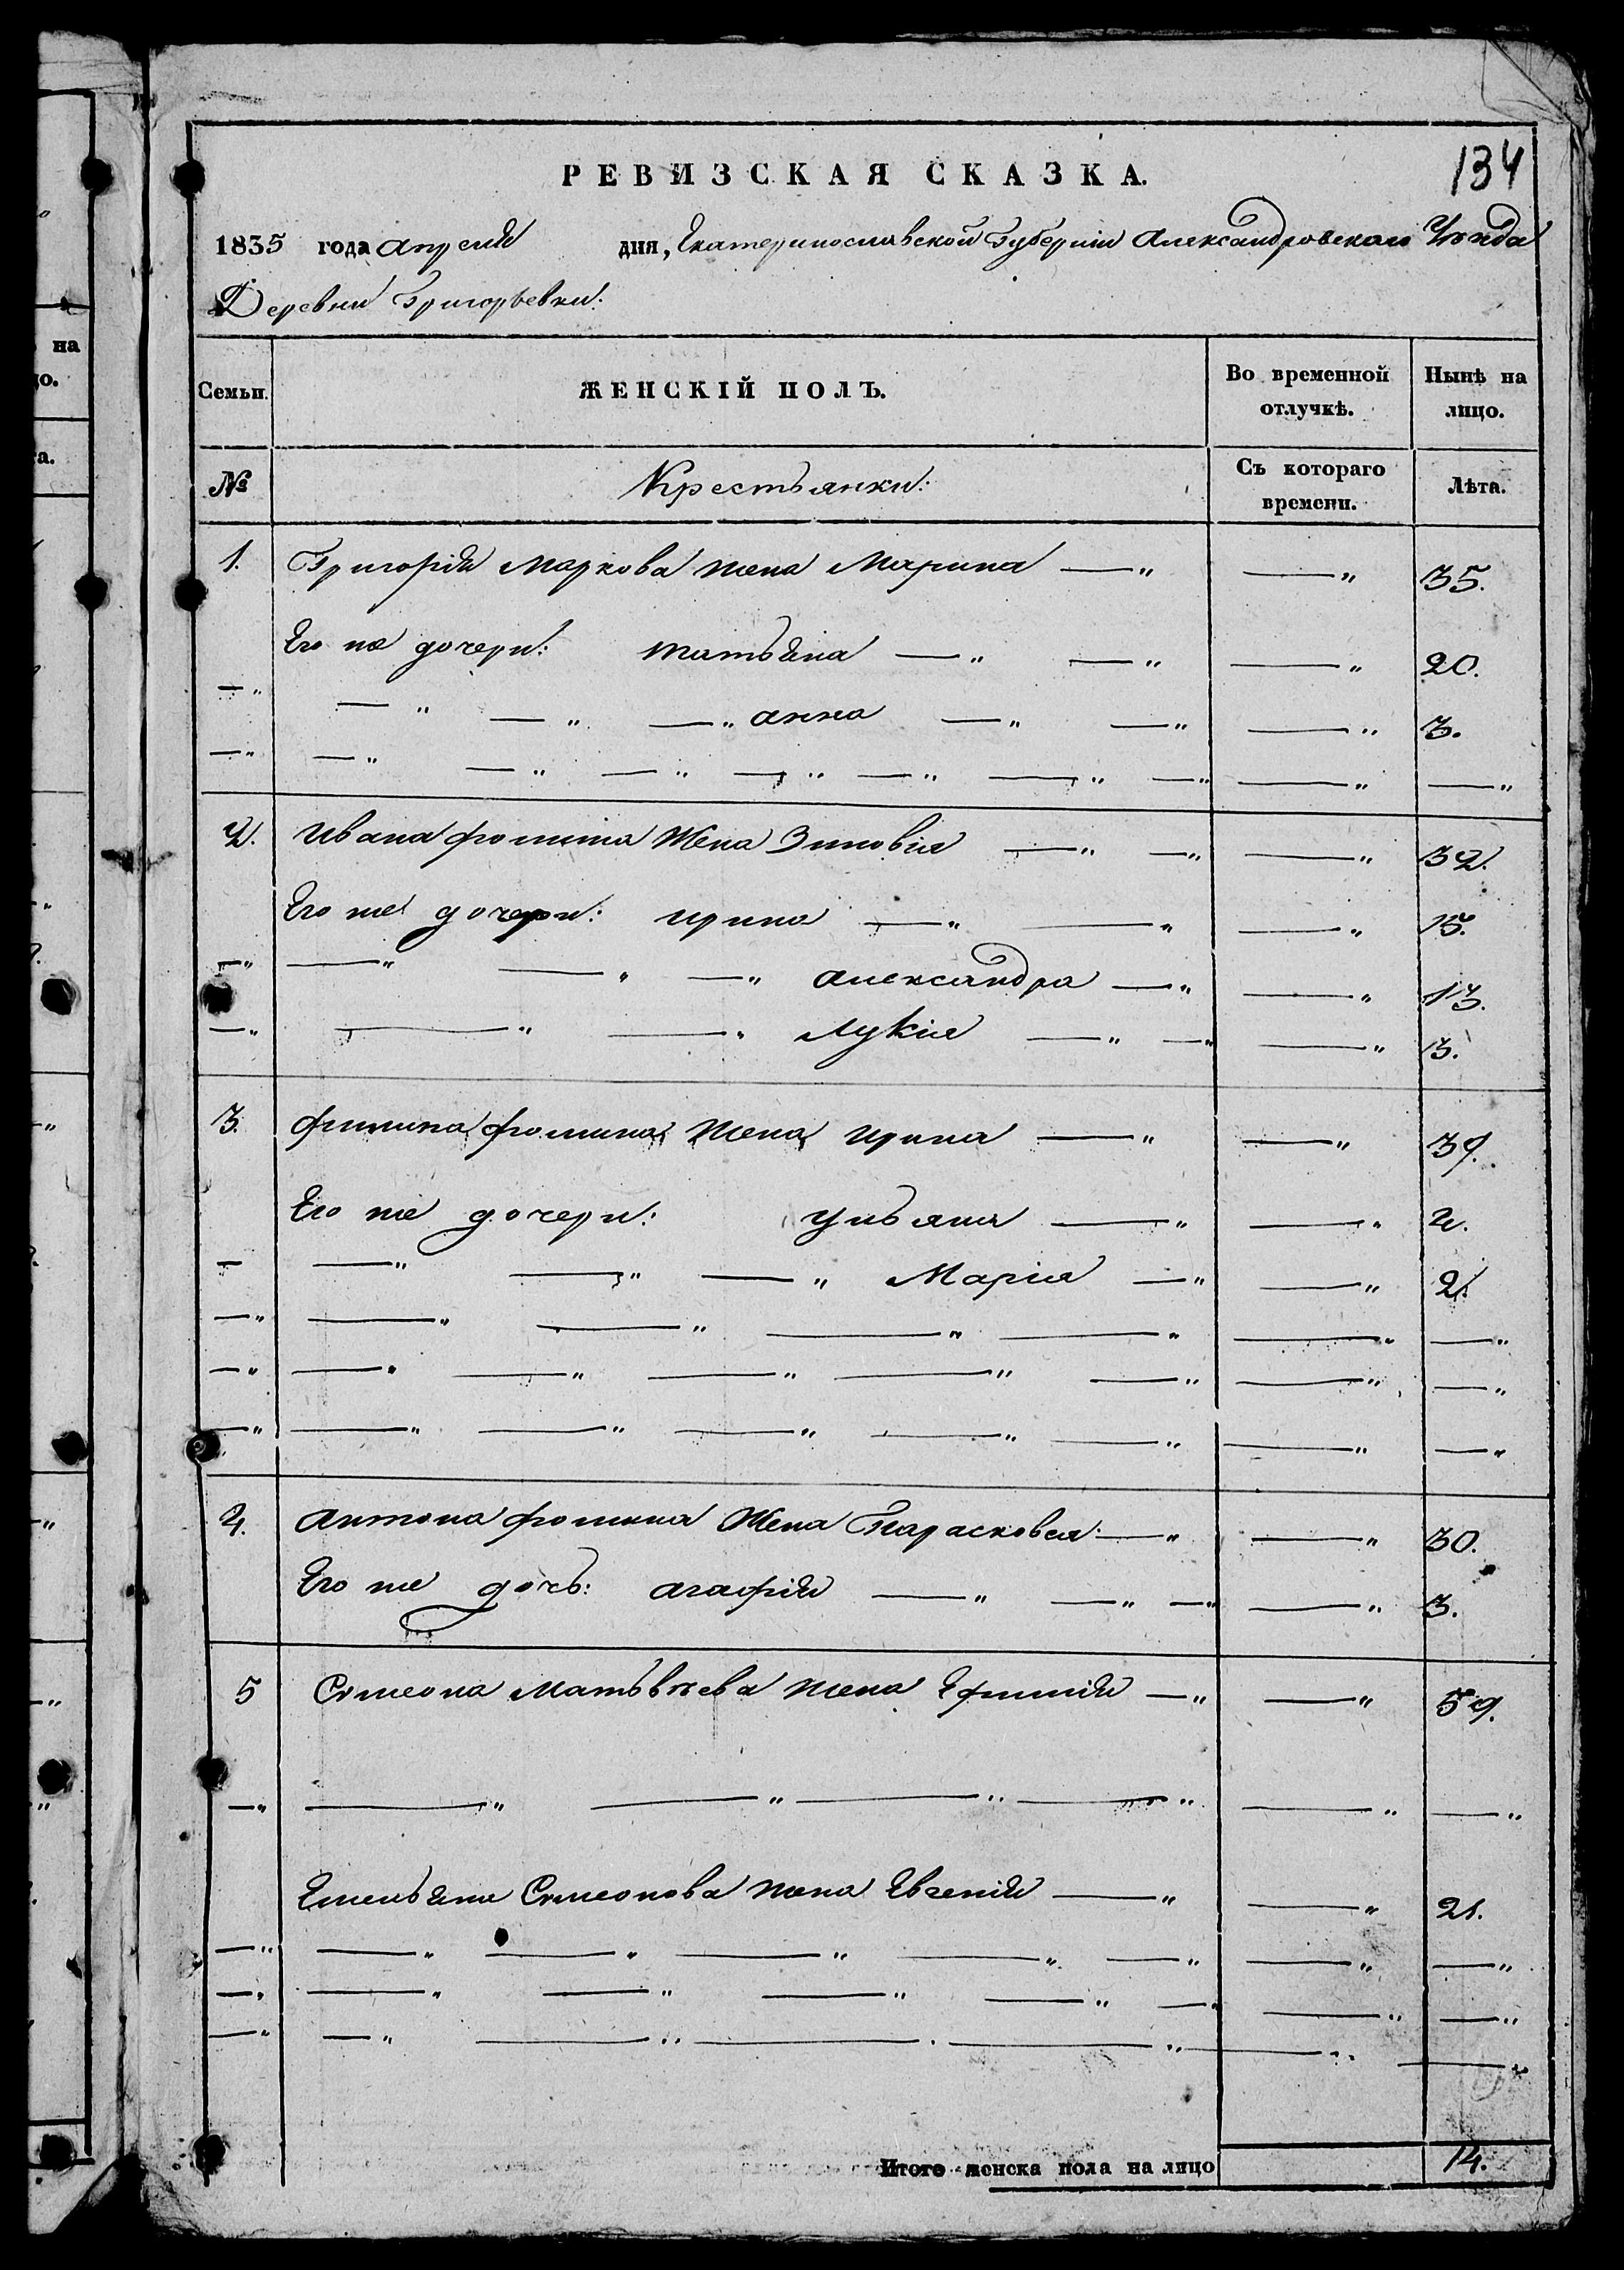 134
РЕВИЗСКАЯ СКАЗКА.
1835 года апреля дня, Екатеринославской Губернии Александровскаго Уѣзда
Деревни Григорьевки:
Семьи. ЖЕНСКІЙ ПОЛЪ. Во временной отлучкѣ. Нынѣ на лицо.
№ Крестьянки: Съ котораго времени. Лѣта.
1. Григорія Маркова жена Марина —„ —„ 35.
Его же дочери: татьяна —„ —„ —„ 20.
—„ —„ —„ —„ анна —„ —„ —„ 3.
—„ —„ —„ —„ —„ —„ —„ —„ —„ —„
2. Ивана фомина Жена Зиновія —„ —„ —„ 32.
Его же дочери: ирина —„ —„ —„ 15.
—„ —„ —„ —„ александра —„ —„ 13.
—„ —„ —„ Лукія —„ —„ —„ 3.
3. филипа фомина Жена ирина —„ —„
Его же дочери: ульяна —„ —„
— —„ —„ —„ Марія —„ —„ 2.
—„ —„ —„ —„ —„ —„ —„
—„ —„ —„ —„ —„ —„ —„ —„
—„ —„ —„ —„ —„ —„ —„ —„
4. антона фомина Жена Парасковья —„ —„ 30.
Его же дочь: агафія —„ —„ —„ —„ 3.
5 Симеона Матьвѣева жена Ефимія —„ —„ 59.
—„ —„ —„ —„ —„ —„ —„
Емельяна Симеонова жена Евгенія —„ —„ 21.
—„ —„ —„ —„ —„ —„ —„ —„
—„ —„ —„ —„ —„ —„ —„ —„
—„ —„ —„ —. —„ —„ —„
Итого женска пола на лицо 14.